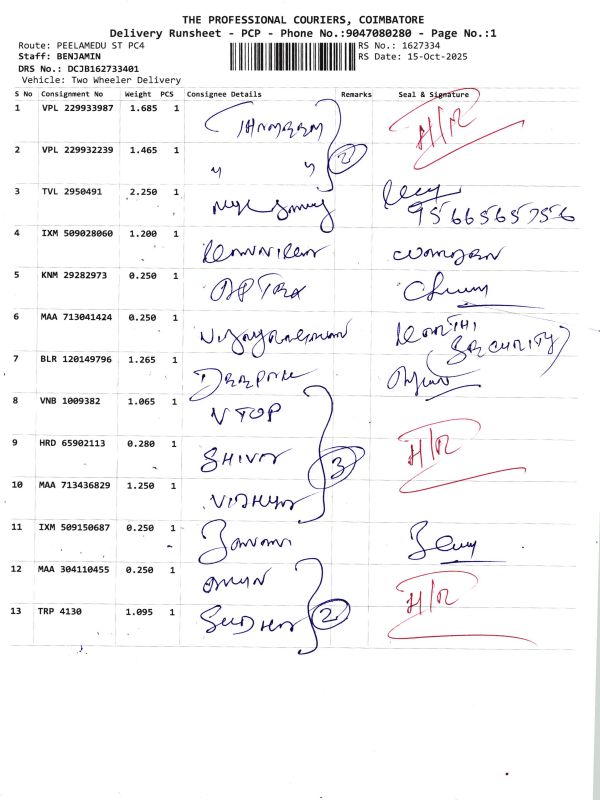 THE PROFESSIONAL COURIERS, COIMBATORE
Delivery Runsheet - PCP - Phone No.:9047080280 - Page No.:1
Route: PEELAMEDU ST PC4
RS No.: 1627334
Staff: BENJAMIN
RS Date: 15-Oct-2025
DRS No.: DCJB162733401
Vehicle: Two Wheeler Delivery
S No Consignment No Weight PCS Consignee Details Remarks Seal & Signature
1 VPL 229933987 1.685 1 H/R
2 VPL 229932239 1.465 1 " " 2
3 TVL 2950491 2.250 1
4 IXM 509028060 1.200 1
5 KNM 29282973 0.250 1
6 MAA 713041424 0.250 1 (SECURITY)
7 BLR 120149796 1.265 1
8 VNB 1009382 1.065 1 V TOP
9 HRD 65902113 0.280 1 SHIVA 3 H/R
10 MAA 713436829 1.250 1 VIDHYA
11 IXM 509150687 0.250 1
12 MAA 304110455 0.250 1 H/R
13 TRP 4130 1.095 1 SUDHA 2